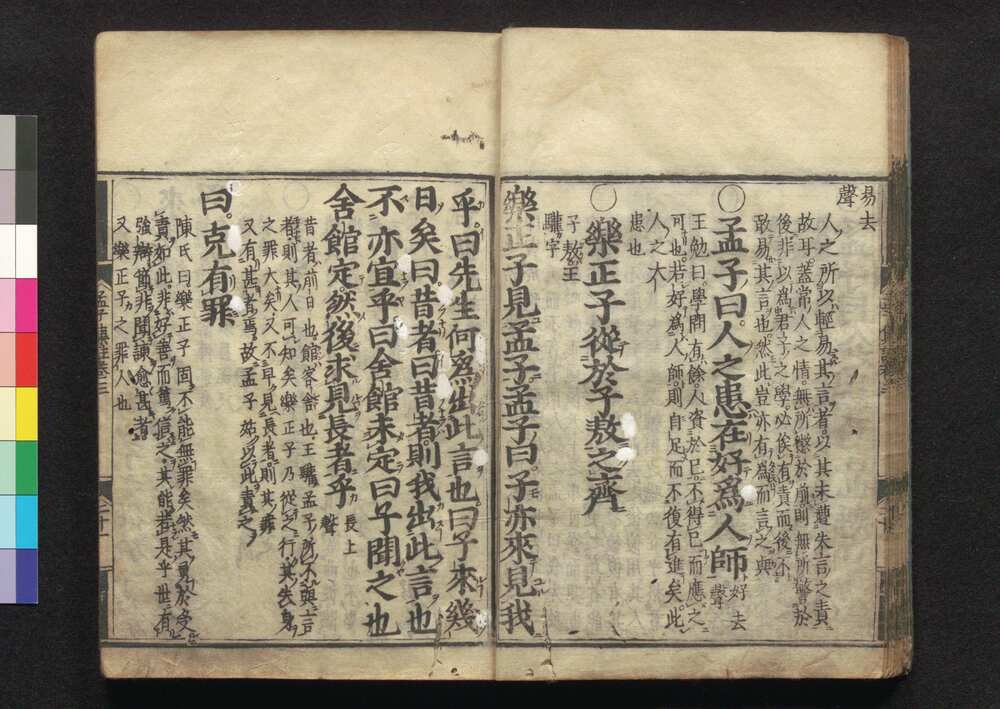 易去
聲
人之所以輕易其言者以其未遭失言之責
故耳蓋常人之情無所懲於前則無所警於
後非以為君子之學必俟有責而後不
敢易其言也然此豈亦有為而言之與
○孟子曰人之患在好為人師 好去聲
王勉曰學問有餘人資於己不得已而應之
可也若好為人師則自足而不復有進矣此
人之大
患也
○樂正子從於子敖之齊
子敖王
驩字
樂正子見孟子孟子曰子亦來見我
乎曰先生何為出此言也曰子來幾
日矣曰昔者曰昔者則我出此言也
不亦宜乎曰舍館未定曰子聞之也
舍館定然後求見長者乎 長上聲
昔者前日也館客舍也王驩孟子所不與言
者則其人可知矣樂正子乃從之行其失身
之罪大矣又不早見長者則其罪
又有甚者焉故孟子姑以此責之
曰克有罪
陳氏曰樂正子固不能無罪矣然其勇於受
責如此非好善而篤信之其能若是乎世有
強辯飾非聞諫愈甚者
又樂正子之罪人也